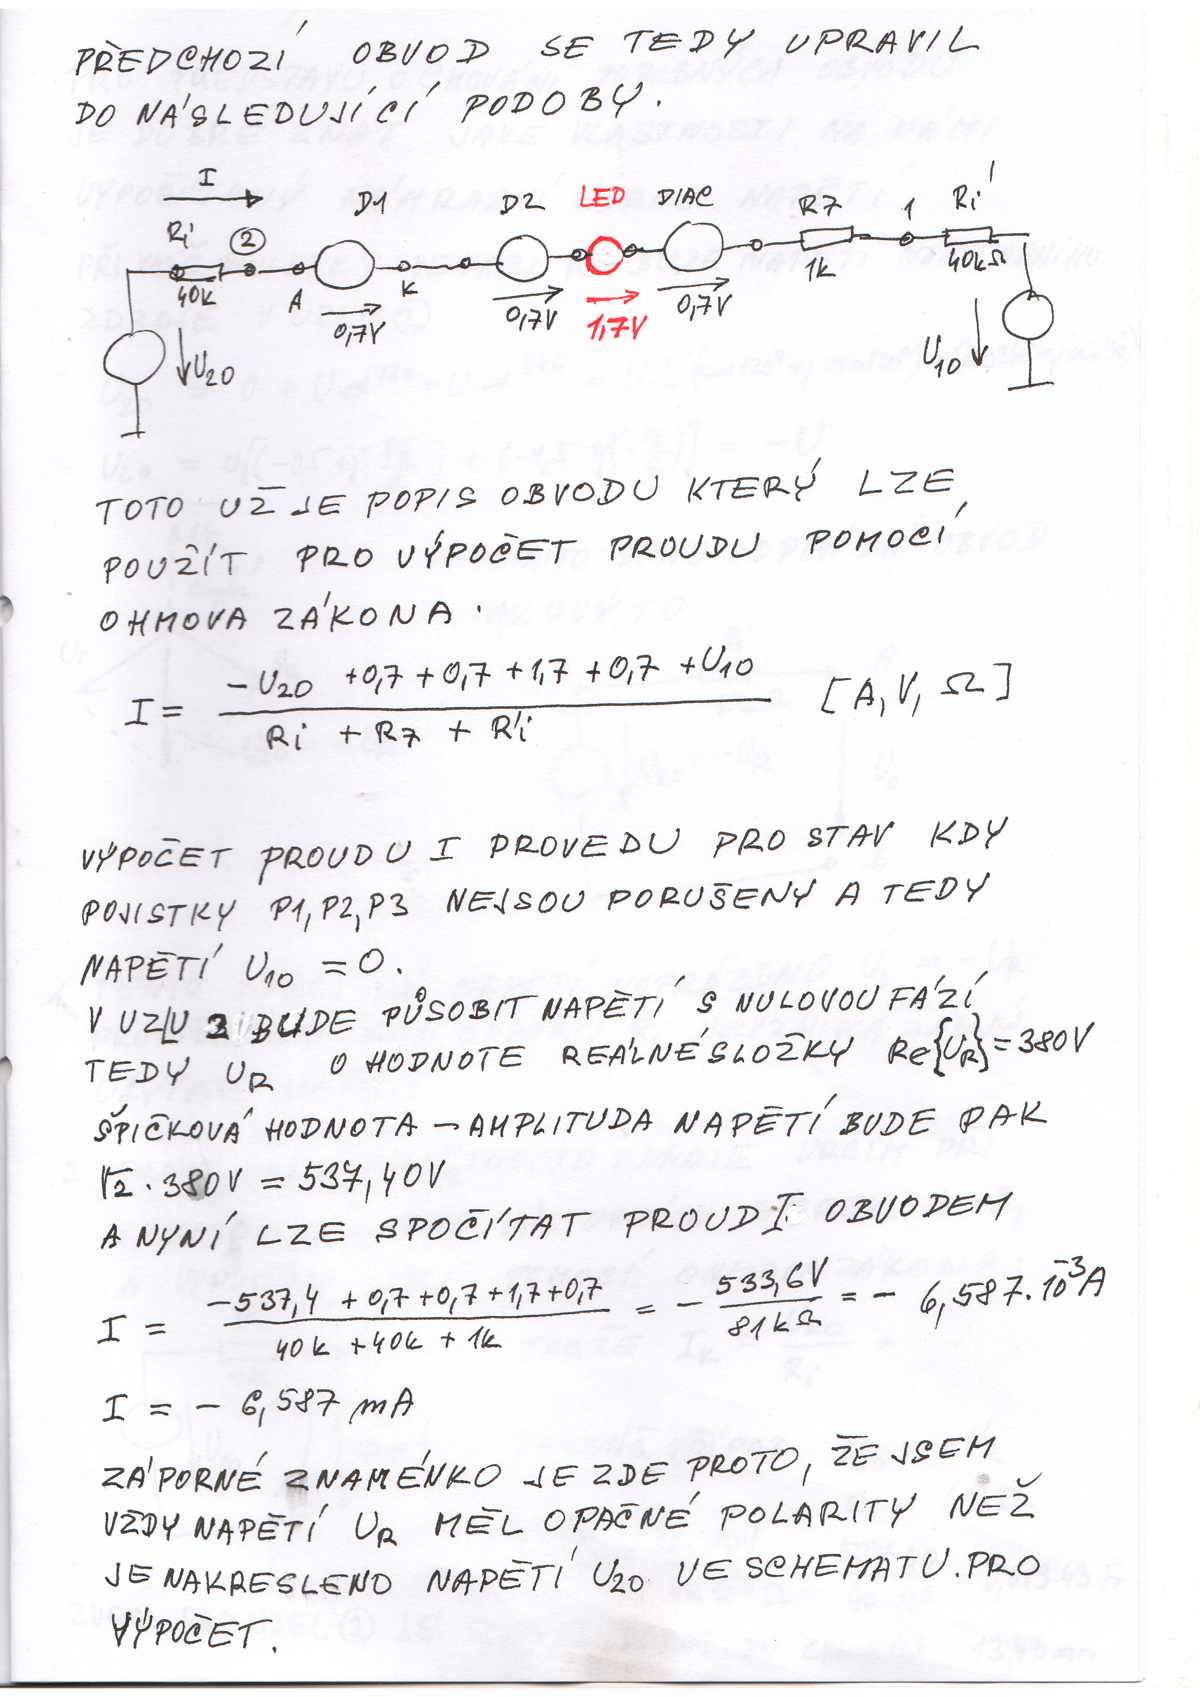 PŘEDCHOZÍ OBVOD SE TEDY UPRAVIL
DO NÁSLEDUJÍCÍ PODOBY.
I
D1
D2
LED
DIAC
R7
1
Ri'
Ri
2
40k
A
K
0,7V
0,7V
1,7V
0,7V
1k
40kΩ
U20
U10
TOTO UŽ JE POPIS OBVODU KTERÝ LZE
POUŽÍT PRO VÝPOČET PROUDU POMOCÍ
OHMOVA ZÁKONA.
I = (-U20 +0,7+0,7+1,7+0,7+U10) / (Ri + R7 + R'i) [A, V, Ω]
VÝPOČET PROUDU I PROVEDU PRO STAV KDY
POJISTKY P1, P2, P3 NEJSOU PORUŠENY A TEDY
NAPĚTÍ U10 = 0.
V UZLU 2 BUDE PŮSOBIT NAPĚTÍ S NULOVOU FÁZÍ
TEDY UR O HODNOTE REÁLNÉ SLOŽKY Re{UR}=380V
ŠPIČKOVÁ HODNOTA – AMPLITUDA NAPĚTÍ BUDE PAK
√2 . 380V = 537,40V
A NYNÍ LZE SPOČÍTAT PROUD I OBVODEM
I = (-537,4 +0,7+0,7+1,7+0,7) / (40k +40k + 1k) = - 533,6V / 81kΩ = - 6,587.10⁻³A
I = - 6,587 mA
ZÁPORNÉ ZNAMÉNKO JE ZDE PROTO, ŽE JSEM
VŽDY NAPĚTÍ UR MĚL OPAČNÉ POLARITY NEŽ
JE NAKRESLENO NAPĚTÍ U20 VE SCHEMATU. PRO
VÝPOČET.